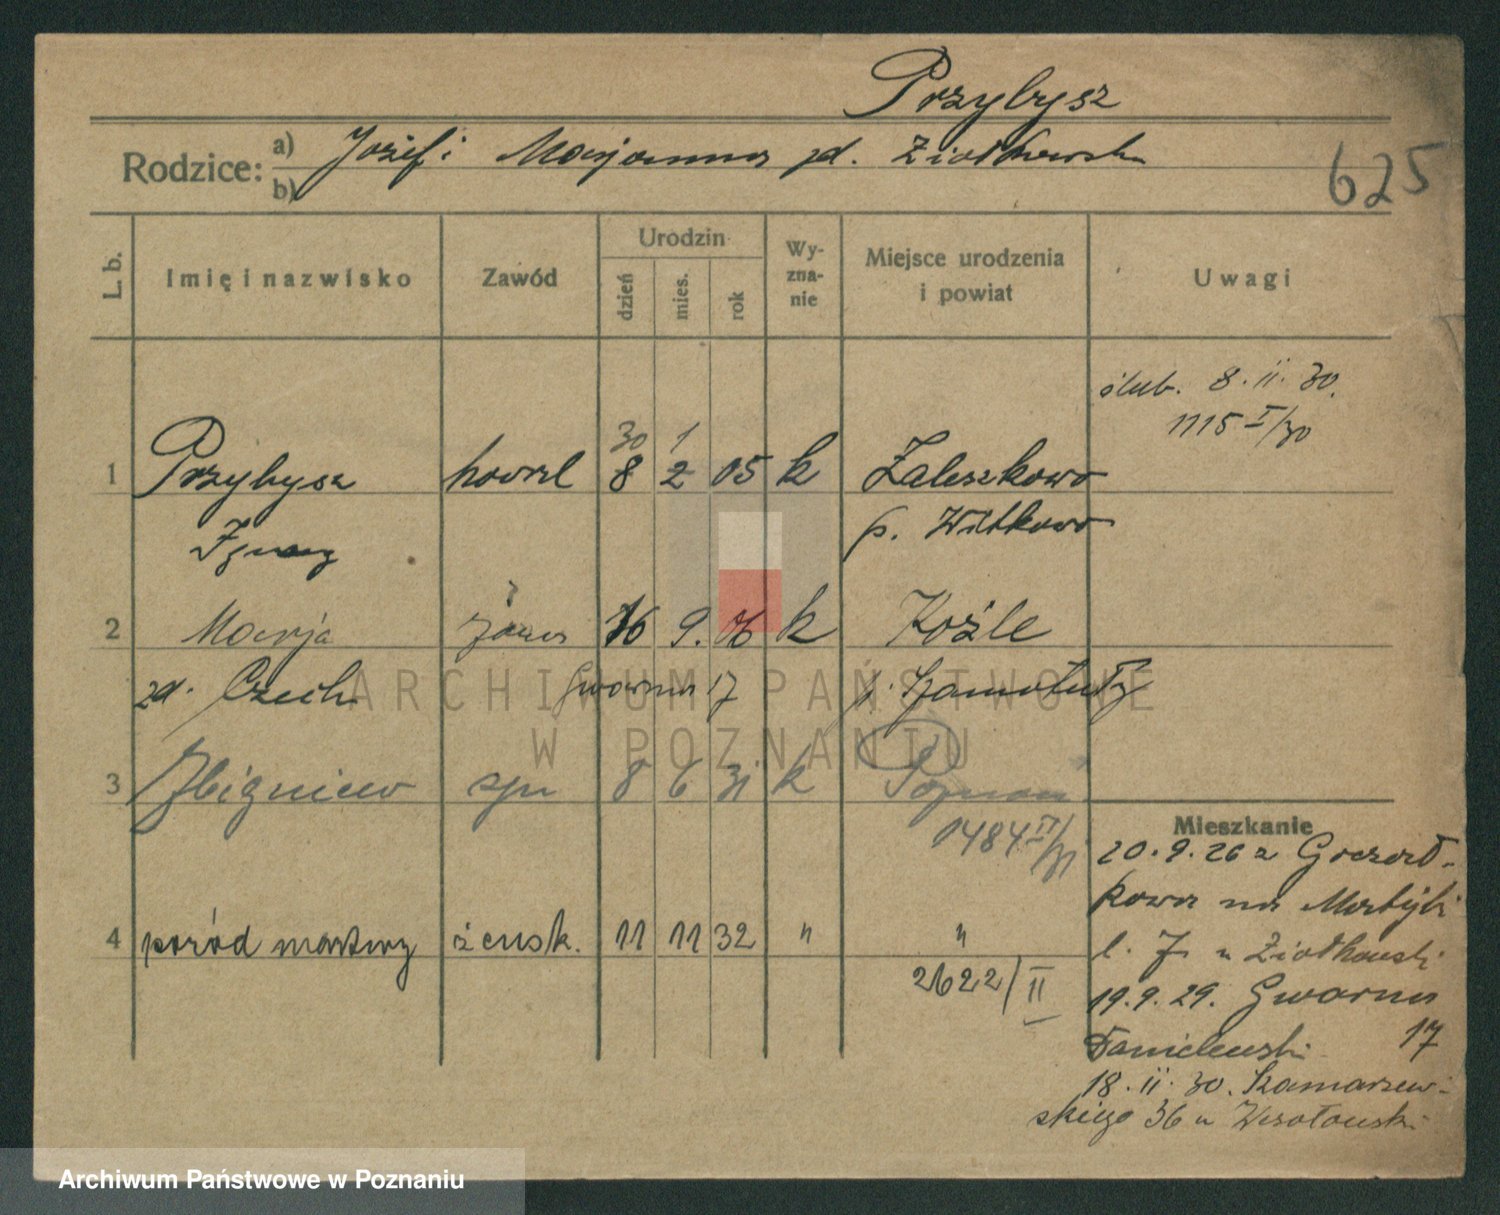 Przybysz
Rodzice: a) Józef i Marjanna zd. Ziółkowska
b)
625
L. b. Imię i nazwisko Zawód Urodzin dzień mies. rok Wyznanie Miejsce urodzenia i powiat Uwagi
ślub. 8. II. 30.
1115 I/30
30 1
1 Przybysz kowal 8 2 05 k Zaleszkowo
Ignacy p. Witkowo
2 Marja żona 16 9. 06 k Koźle
zd. Czech Gwarna 17 p. Szamotuły
3 Zbigniew syn 8 6 31 k Poznań
1484 II/31
4 poród martwy żeńsk. 11 11 32 " "
2622/II
Mieszkanie
20.9.26 z Goczał-
kowa na Matejki
l. 7. u Ziółkowski
19.9.29. Gwarna
17
Danielewski
18. II. 30. Szamarzew-
skiego 36 u Wesołowski
ARCHIWUM PAŃSTWOWE
W POZNANIU
Archiwum Państwowe w Poznaniu